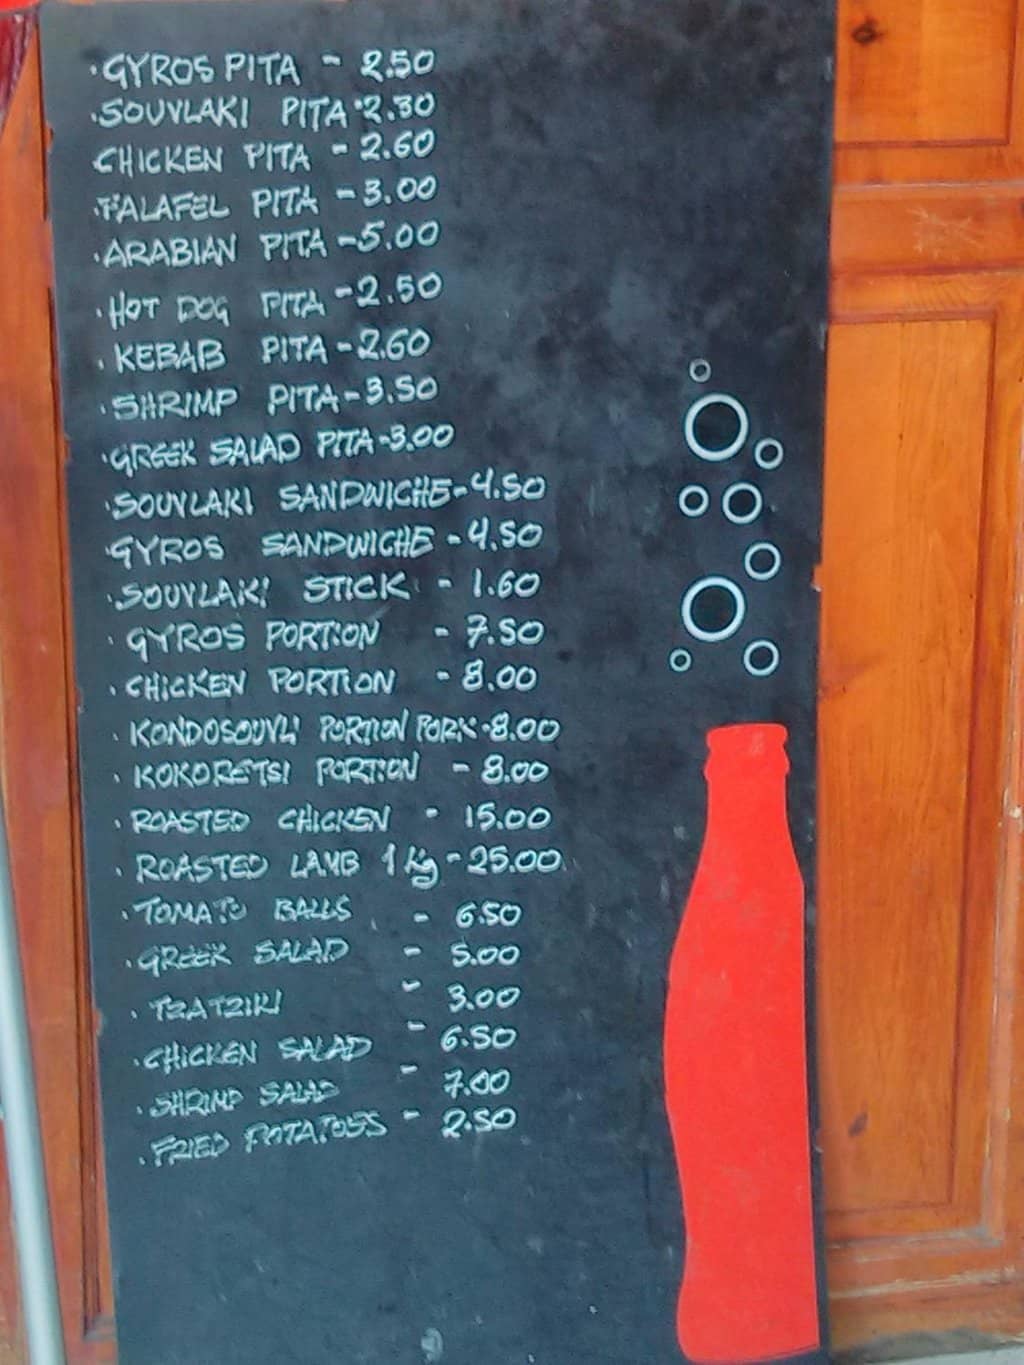 ·GYROS PITA - 2.50
·SOUVLAKI PITA·2.30
CHICKEN PITA - 2.60
·FALAFEL PITA - 3.00
·ARABIAN PITA - 5.00
·HOT DOG PITA - 2.50
·KEBAB PITA - 2.60
·SHRIMP PITA - 3.50
·GREEK SALAD PITA - 3.00
·SOUVLAKI SANDWICHE - 4.50
·GYROS SANDWICHE - 4.50
·SOUVLAKI STICK - 1.60
·GYROS PORTION - 7.50
·CHICKEN PORTION - 8.00
·KONDOSOUVLI PORTION PORK - 8.00
·KOKORETSI PORTION - 8.00
·ROASTED CHICKEN - 15.00
·ROASTED LAMB 1 Kg - 25.00
·TOMATO BALLS - 6.50
·GREEK SALAD - 5.00
·TZATZIKI - 3.00
·CHICKEN SALAD - 6.50
·SHRIMP SALAD - 7.00
·FRIED POTATOES - 2.50